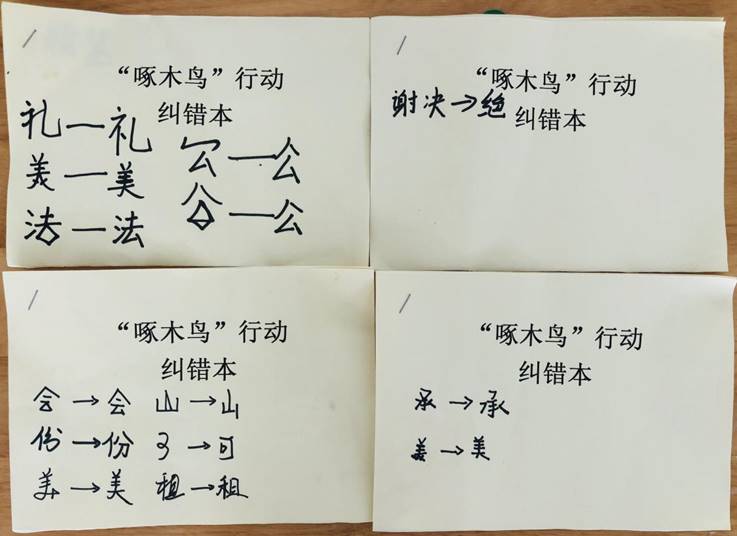 “啄木鸟”行动
纠错本
礼—礼
美—美
法—法
公—公
公—公
“啄木鸟”行动
纠错本
谢决→绝
“啄木鸟”行动
纠错本
会→会 山→山
份→份 →可
美→美 租→租
“啄木鸟”行动
纠错本
承→承
美→美